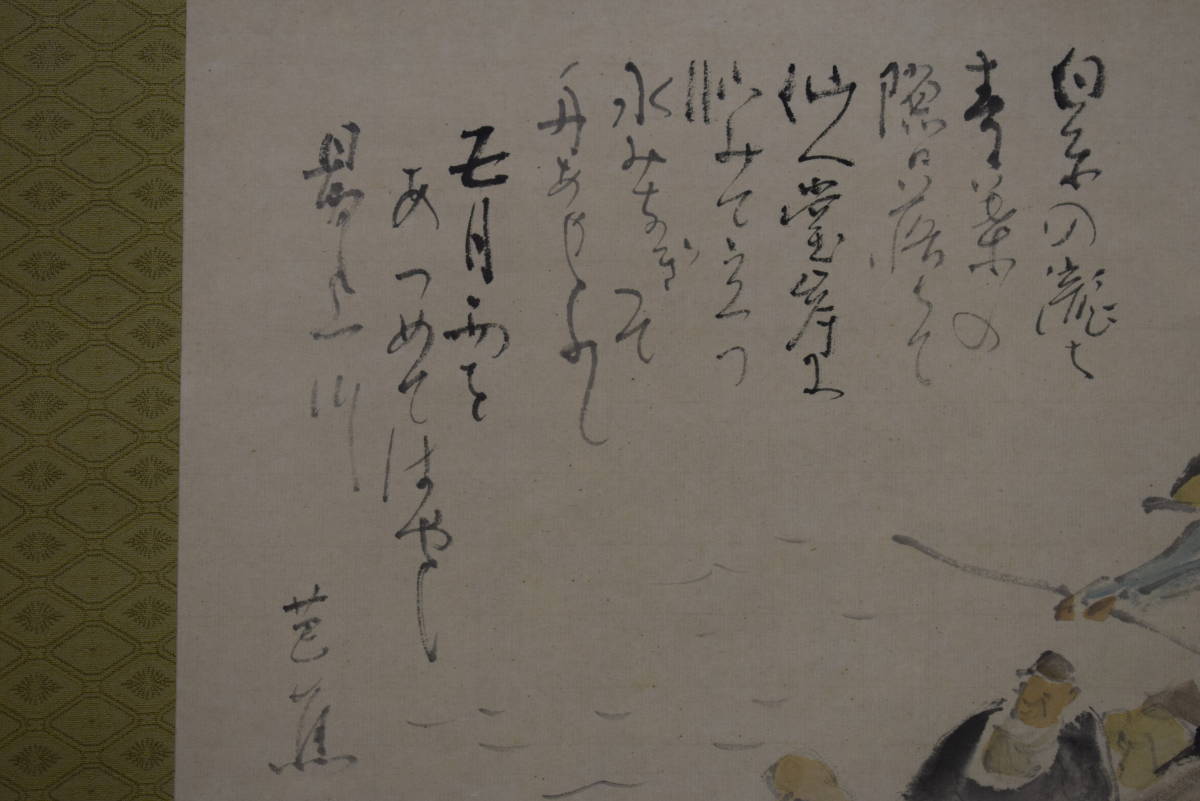 白糸の瀧は
青葉の
隙〻に落て
仙人堂岸に
臨みて立つ
水みなぎつて
舟あやうし
五月雨を
あつめてはやし
最上川
芭蕉